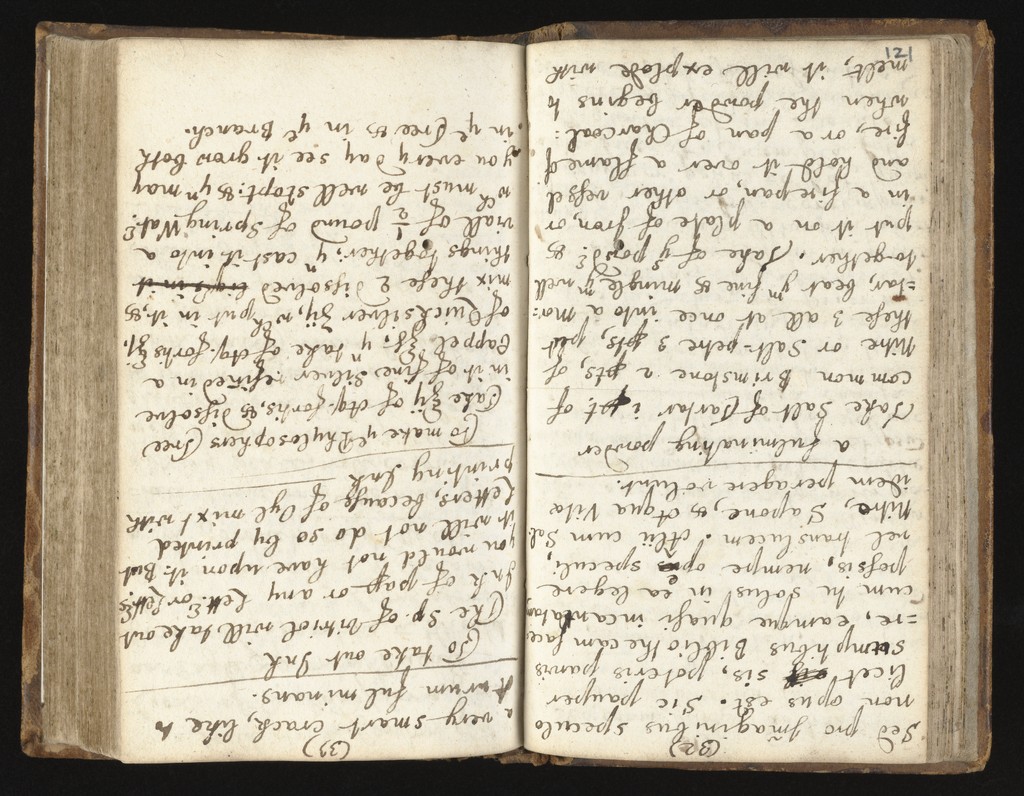 (32)
Sed pro Imaginibus speculo
non opus est. Sic pauper
licet sis, poteris parvis
sumptibus Bibliothecam face
=re, eamque quasi incantatam,
cum tu solus in ea legere
possis, nempe ope speculi
vel translucem. Alii cum Sal:
Nitre, Sapone, & Aqua Vitæ
idem peragere volunt.
a fulminating powder
Take Salt of Tartar i pt. of
common Brimstone 2 pts, of
Nitre or Salt-petre 3 pts, put
these 3 all at once into a Mor:
=tar, beat yᵐ fine & mingle yᵐ well
together. Take of yˢ powdʳ &
put it on a plate of Iron, or
in a firepan, or other vessel
and hold it over a flame of
fire, or a pan of Charcoal:
when the powder begins to
melt, it will explode with
121
(33)
a very smart crack, like
Aurum fulminans.
To take out Ink
The Sp. of Vitriol will take out
Ink of papʳ or any Lettʳ or Lettʳˢ
you would not have upon it: But
it will not do so by printed
Letters, because of Oyl mixt with
printing Ink
To make yᵉ Phylosophers Tree
Take ℥ij of Aq. fortis, & dissolve
in it of fine Silver refined in a
Cappel ℥ß, yⁿ take of Aq. fortis ℥j,
of Quicksilver ʒij, wᶜʰ put in it, &
mix these 2 dissolved
things together; yⁿ cast it into a
viall of ½ pound of Spring Watʳ:
wᶜʰ must be well stopt: & yⁿ may
you every day see it grow both
in yᵉ Tree & in yᵉ Branch.